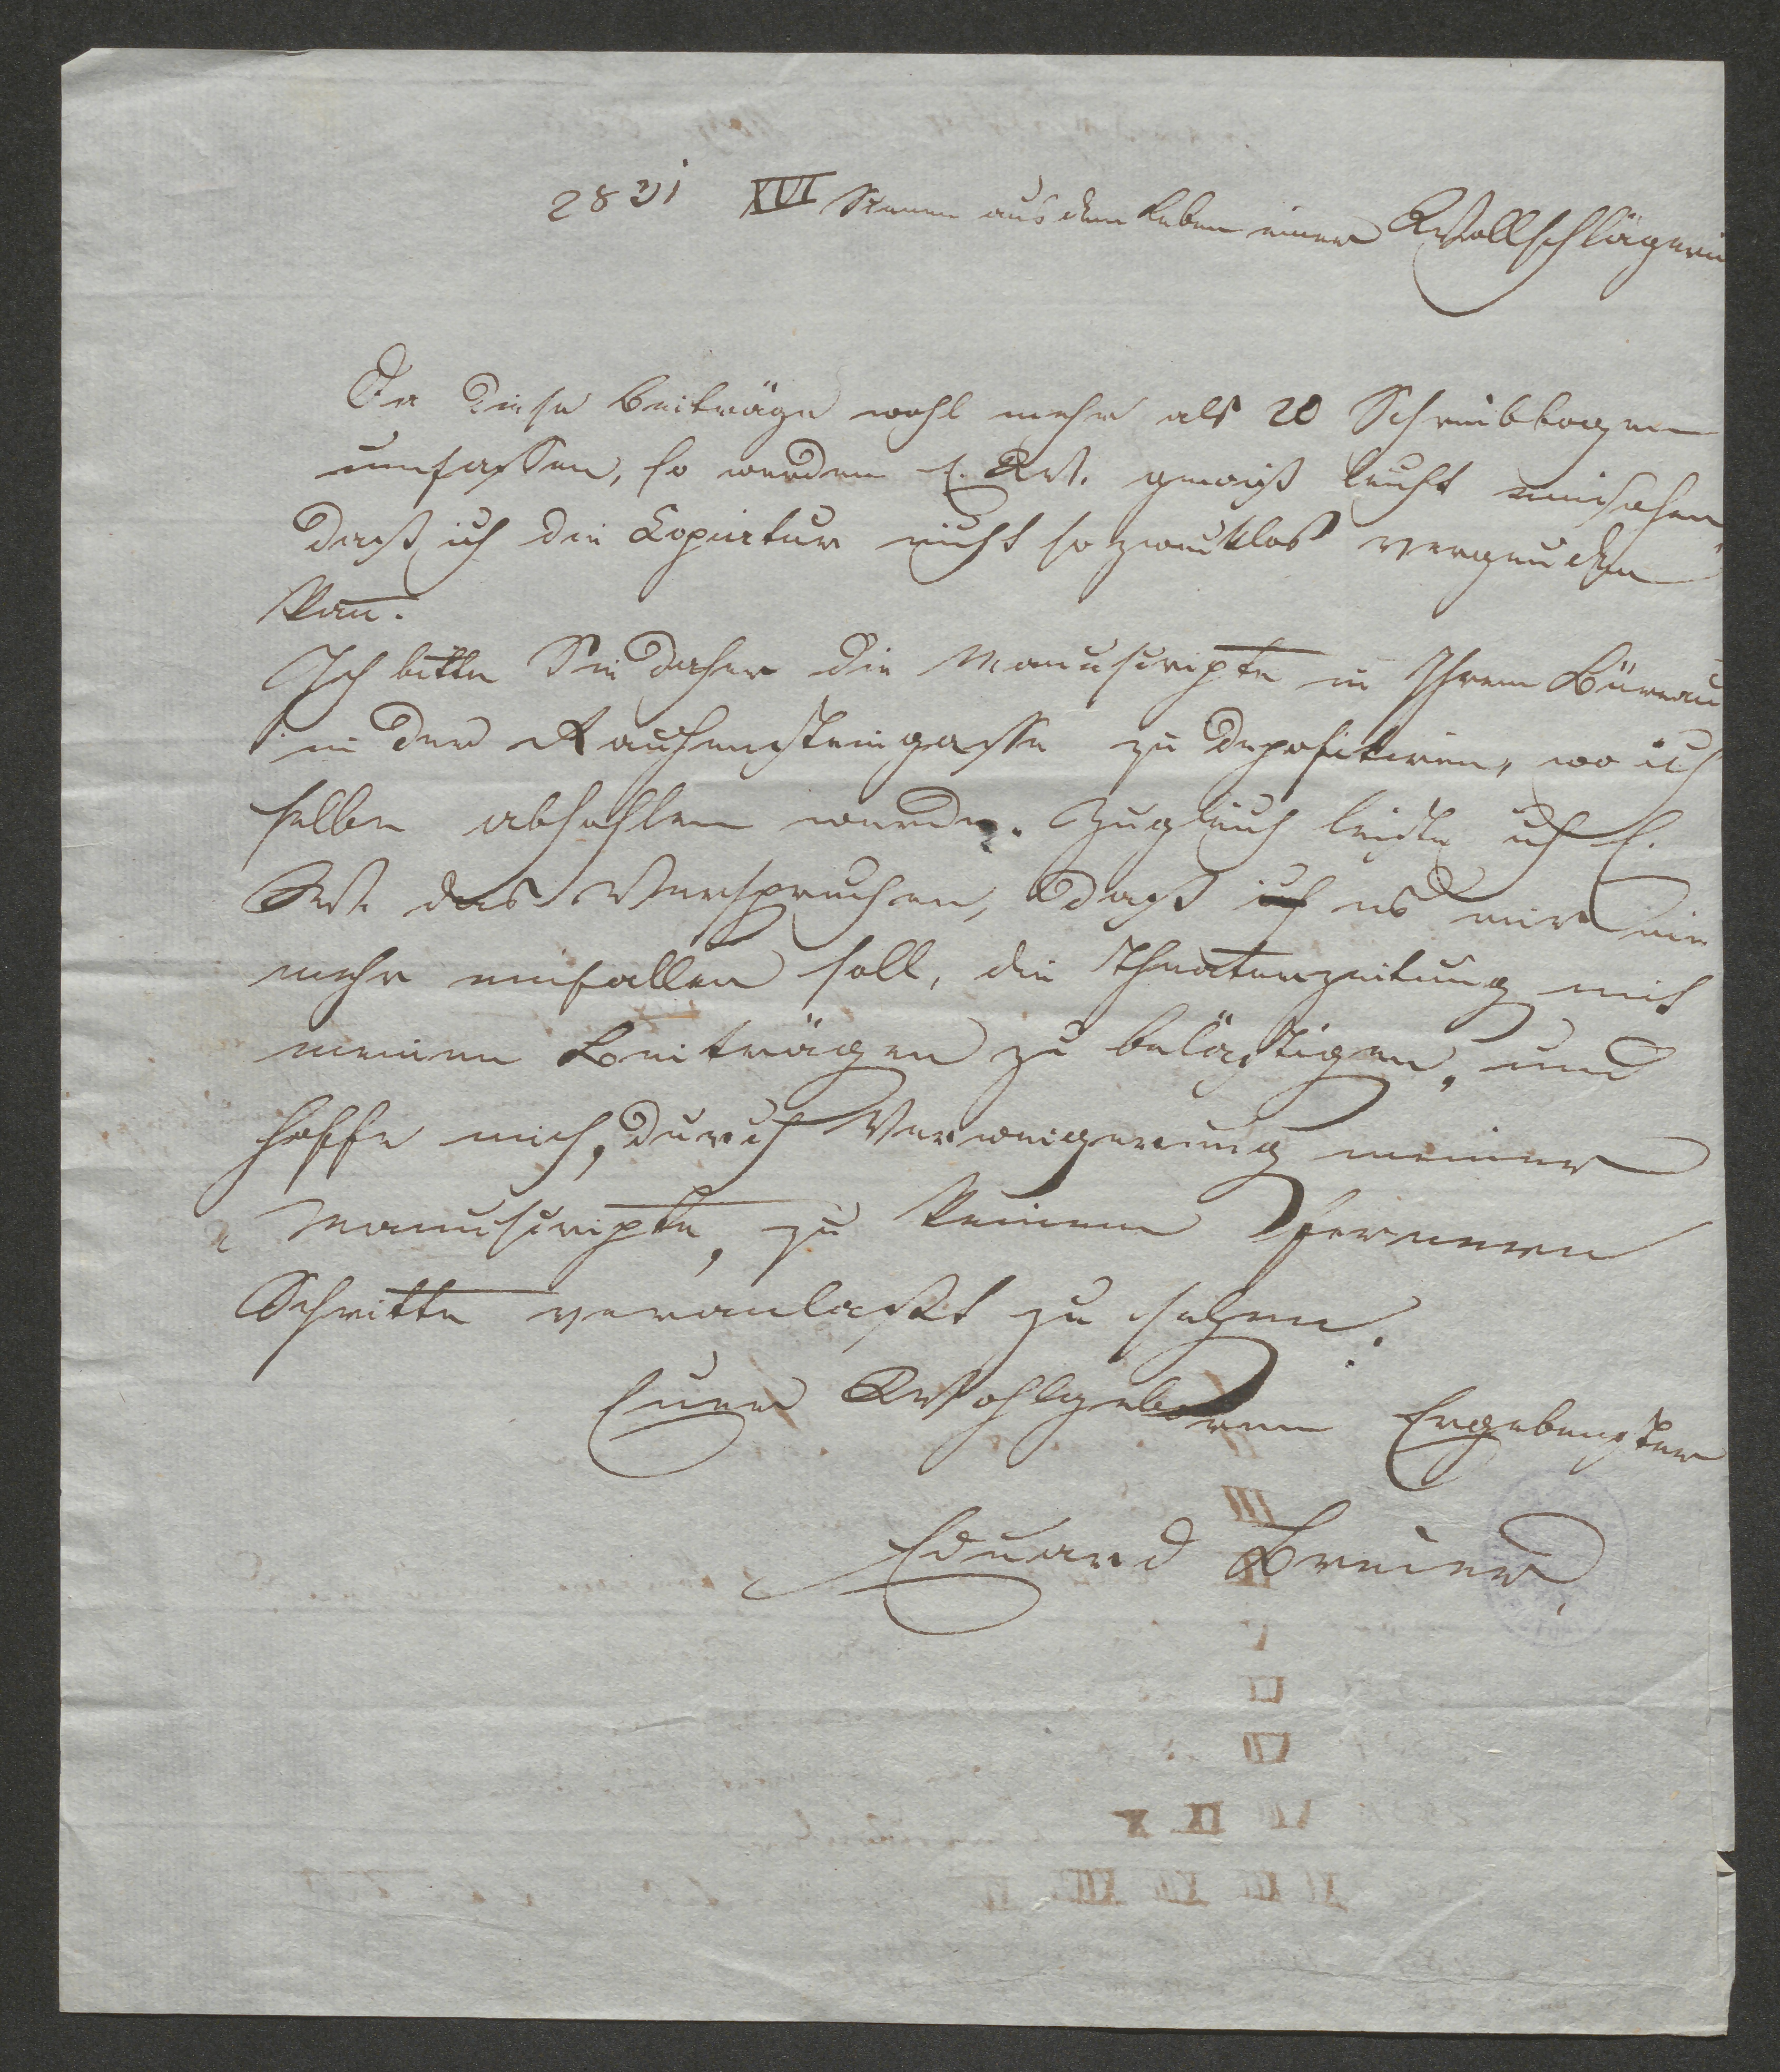 28 Mai XVI Scenen aus dem Leben einer Wollschlägerin
Da diese Beiträge wohl mehr als 20 Schreibbogen
umfassen, so werden E. W. gewiß leicht einsehen,
daß ich die Copiatur nicht so zwecklos vergeuden
kann.
Ich bitte Sie daher die Manuscripte in Ihrem Büreau
in der Rauhensteingasse zu depositiren, wo ich
selbe abhohlen werde. Zugleich leiste ich E.
W. das Versprechen, daß ich es mir nie
mehr einfallen soll, die Theaterzeitung mit
meinen Beiträgen zu belästigen, und
hoffe mich, durch Verweigerung meiner
Manuscripte, zu keinem ferneren
Schritte veranlaßt zu sehen.
Euer Wohlgeboren Ergebenster
Eduard Breier